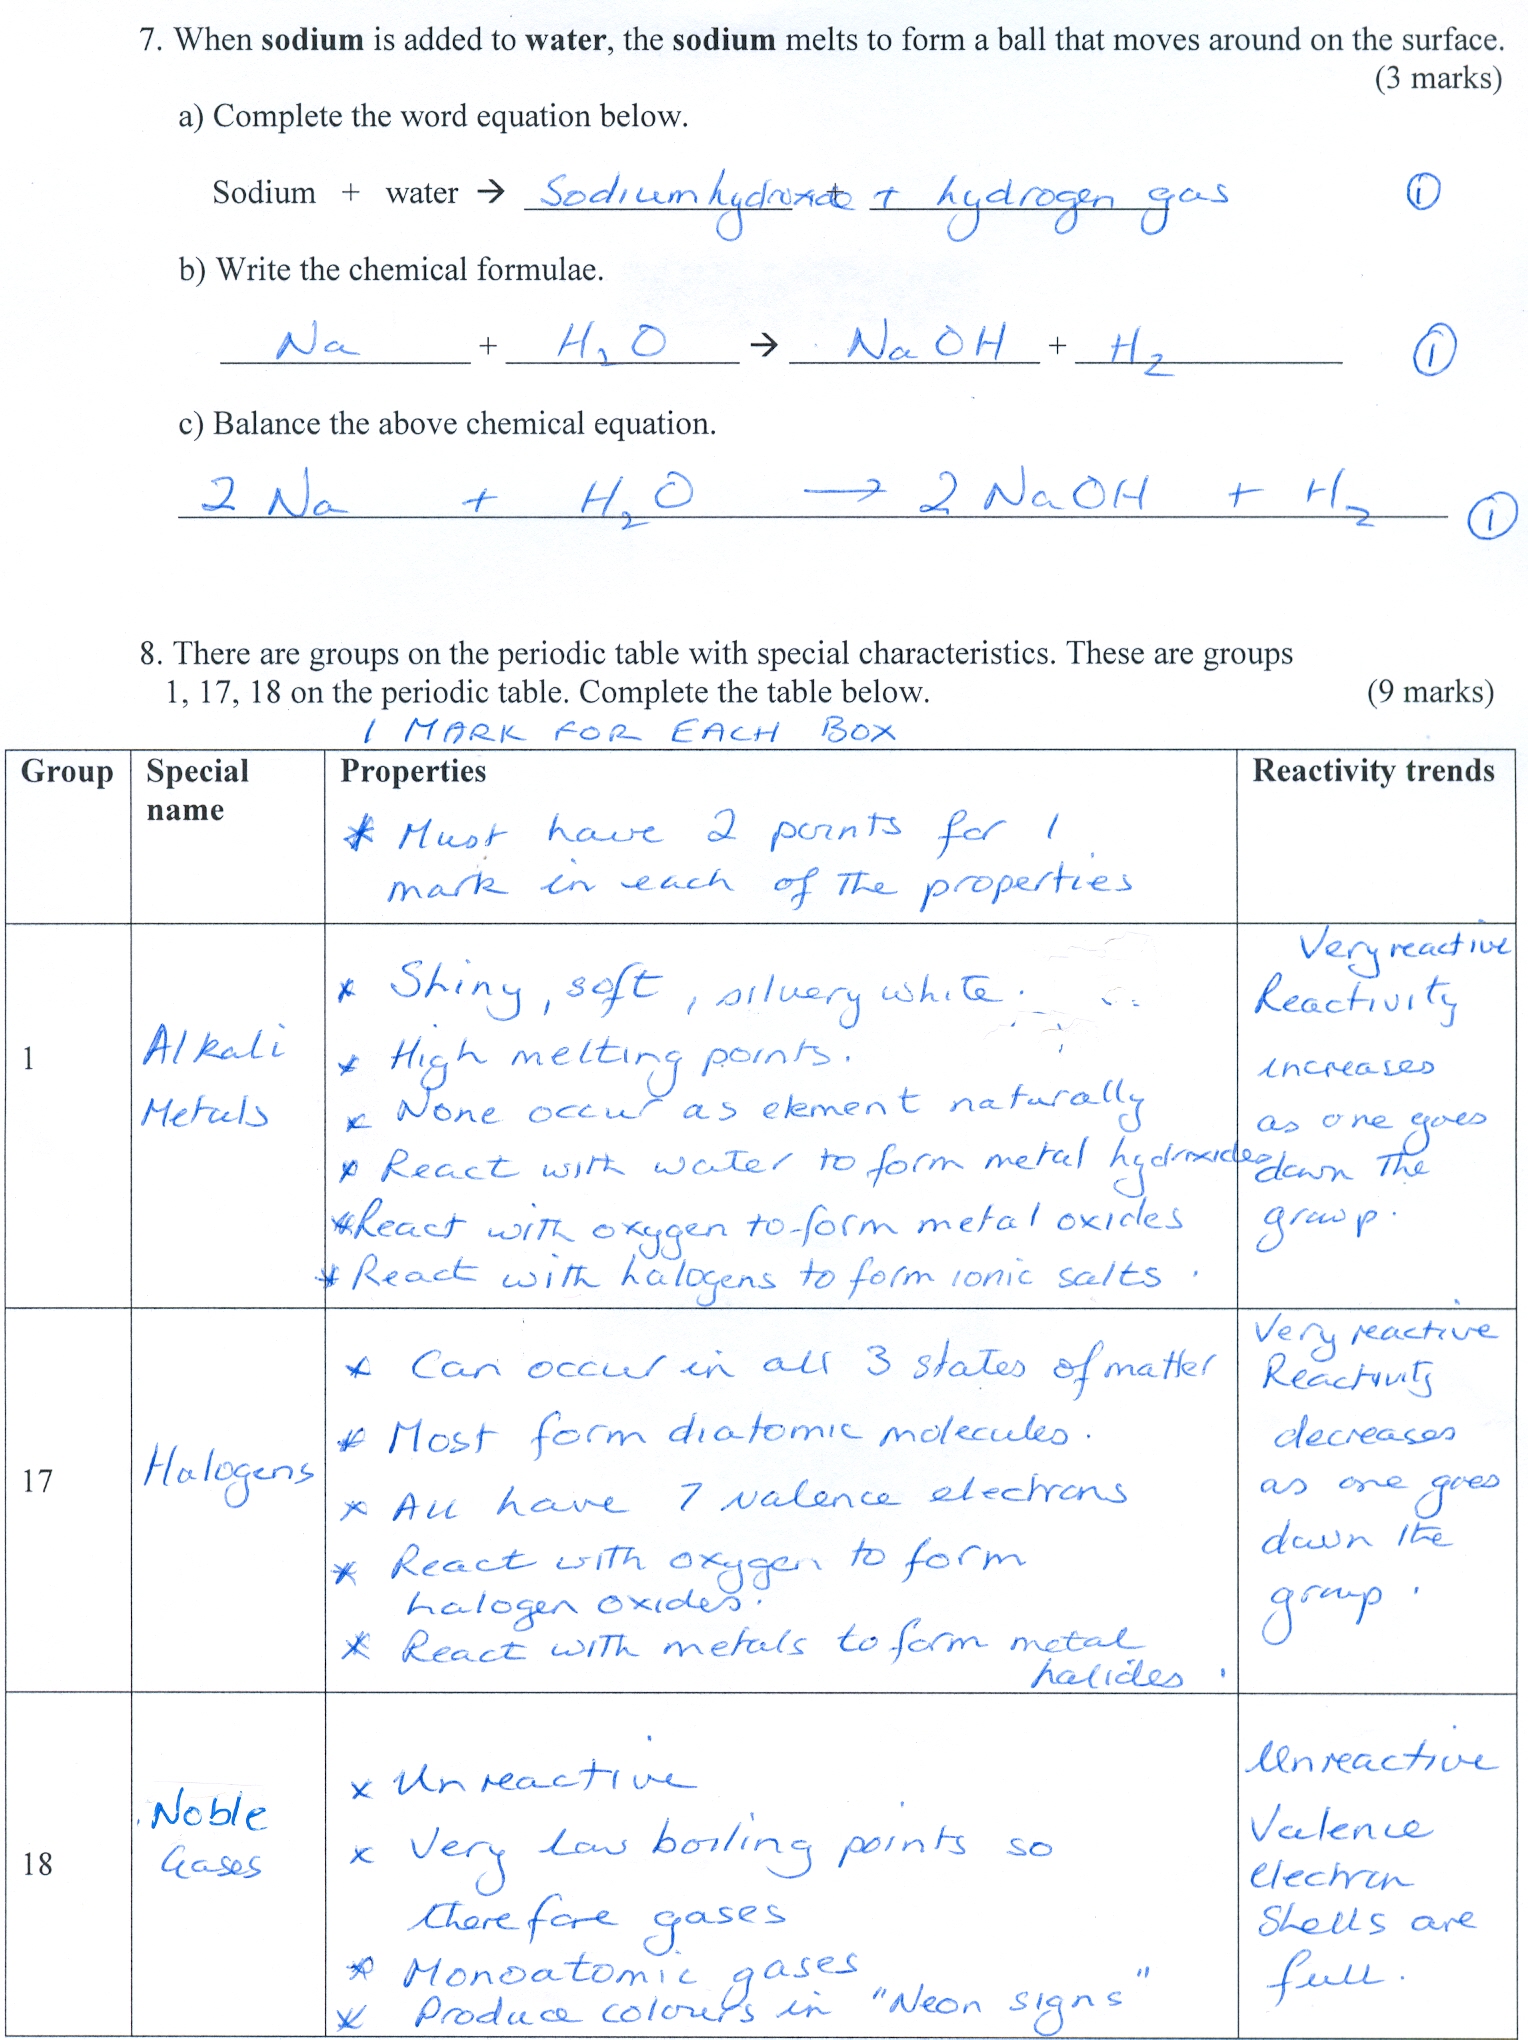 7. When sodium is added to water, the sodium melts to form a ball that moves around on the surface.
(3 marks)
a) Complete the word equation below.
Sodium + water → Sodium hydroxide + hydrogen gas ①
b) Write the chemical formulae.
Na + H₂O → NaOH + H₂ ①
c) Balance the above chemical equation.
2 Na + H₂O → 2 NaOH + H₂ ①
8. There are groups on the periodic table with special characteristics. These are groups
1, 17, 18 on the periodic table. Complete the table below. (9 marks)
1 MARK FOR EACH BOX
Group Special name Properties Reactivity trends
* Must have 2 points for 1
mark in each of the properties
1
Alkali
Metals
* Shiny, soft, silvery white.
* High melting points.
* None occur as element naturally
* React with water to form metal hydroxides
* React with oxygen to form metal oxides
* React with halogens to form ionic salts.
Very reactive
Reactivity
increases
as one goes
down the
group.
17
Halogens
* Can occur in all 3 states of matter
* Most form diatomic molecules.
* All have 7 valence electrons
* React with oxygen to form
halogen oxides.
* React with metals to form metal
halides.
Very reactive
Reactivity
decreases
as one goes
down the
group.
18
Noble
Gases
* Unreactive
* Very low boiling points so
therefore gases
* Monoatomic gases
* Produce colours in "Neon signs"
Unreactive
Valence
electron
Shells are
full.